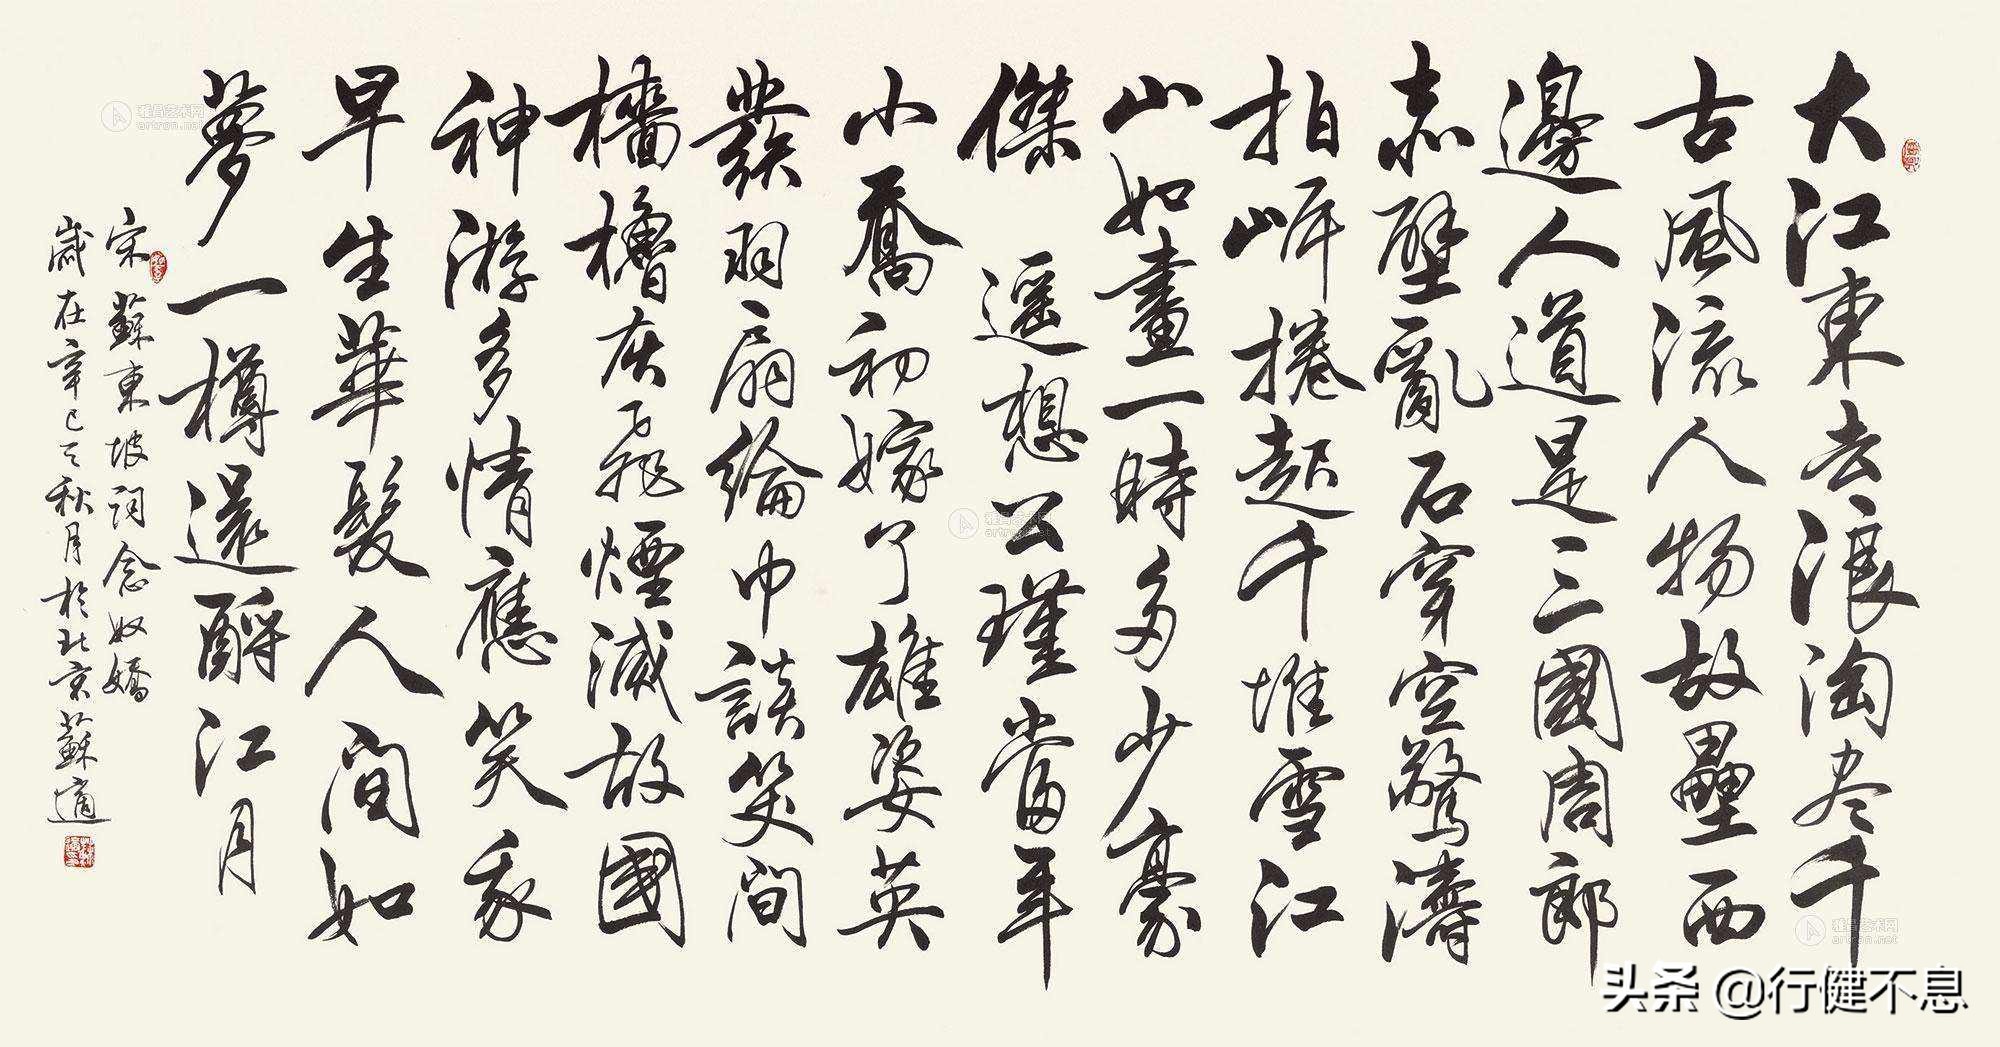 大江東去浪淘尽千
古風流人物故壘西
邊人道是三國周郎
赤壁亂石穿空驚濤
拍岸捲起千堆雪江
山如畫一時多少豪
傑 遥想公瑾當年
小喬初嫁了雄姿英
發羽扇綸巾談笑间
檣櫓灰飛煙滅故國
神游多情應笑我
早生華髮人间如
夢一樽還酹江月
宋蘇東坡詞念奴嬌
歲在辛巳之秋月於北京蘇適
雅昌艺术网
artron.net
雅昌艺术网
artron.net
雅昌艺术网
artron.net
头条 @行健不息